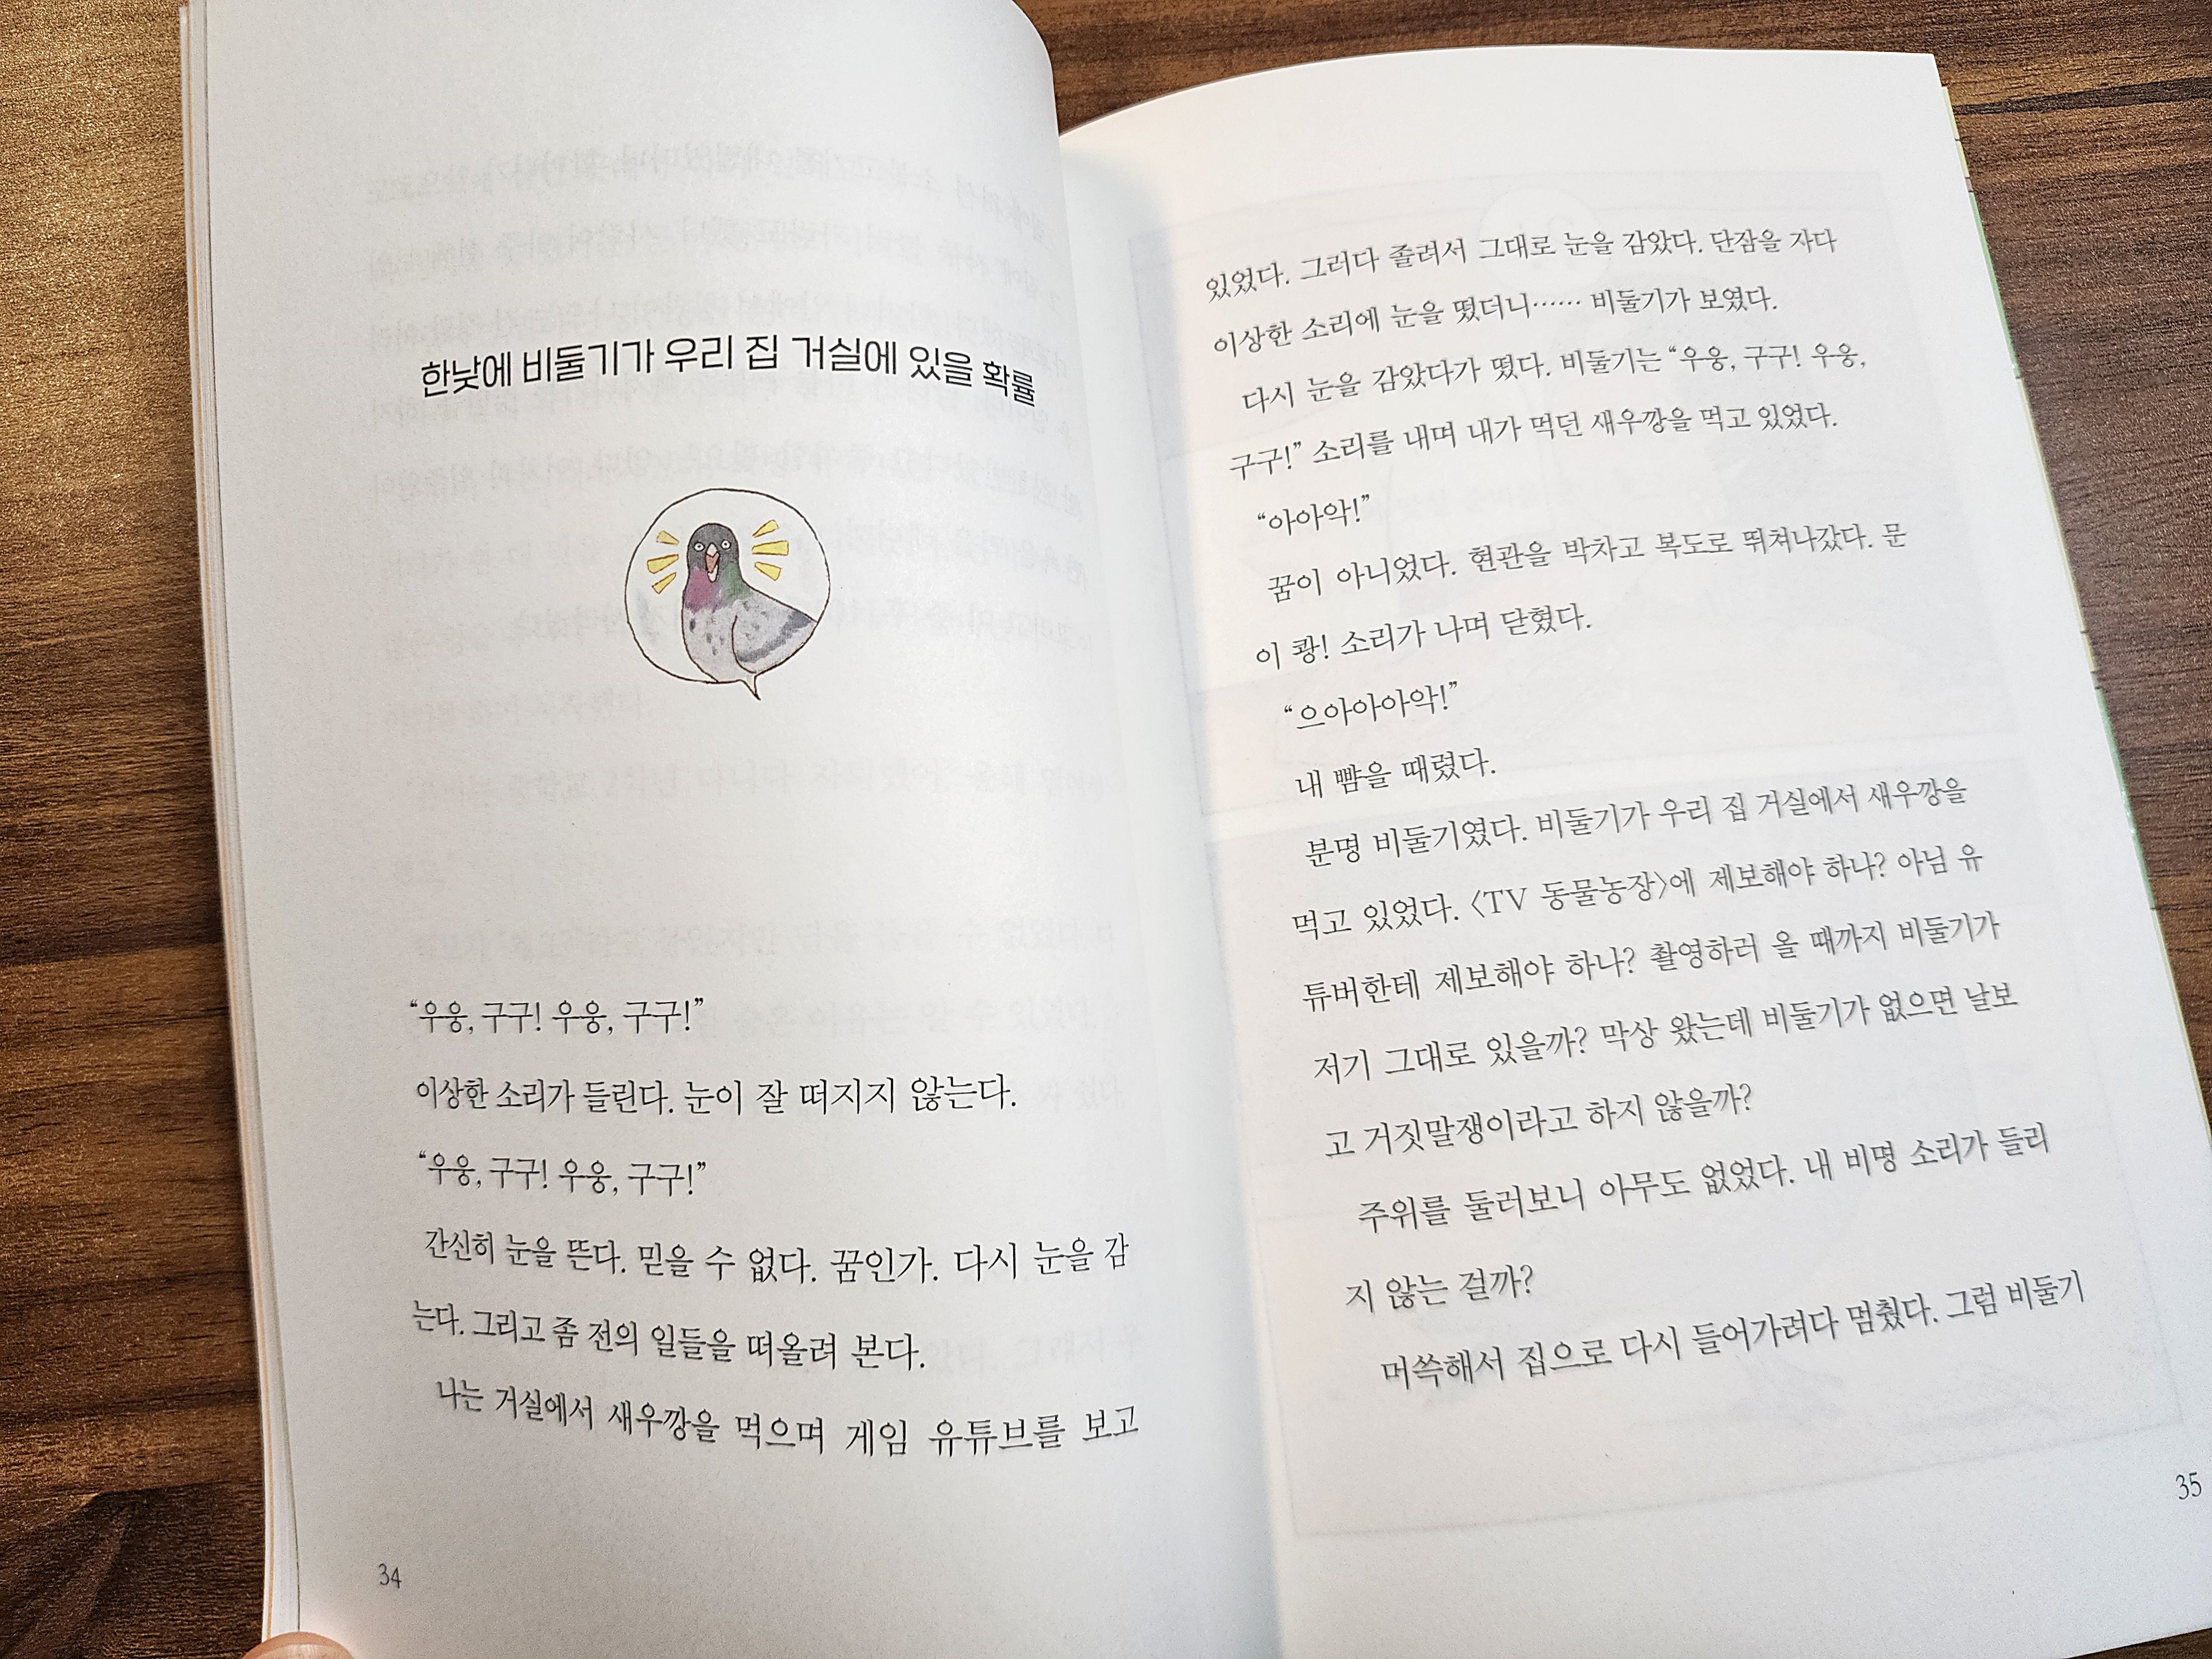 한낮에 비둘기가 우리 집 거실에 있을 확률
“우웅, 구구! 우웅, 구구!”
이상한 소리가 들린다. 눈이 잘 떠지지 않는다.
“우웅, 구구! 우웅, 구구!”
간신히 눈을 뜬다. 믿을 수 없다. 꿈인가. 다시 눈을 감
는다. 그리고 좀 전의 일들을 떠올려 본다.
나는 거실에서 새우깡을 먹으며 게임 유튜브를 보고
34
있었다. 그러다 졸려서 그대로 눈을 감았다. 단잠을 자다
이상한 소리에 눈을 떴더니…… 비둘기가 보였다.
다시 눈을 감았다가 떴다. 비둘기는 “우웅, 구구! 우웅,
구구!” 소리를 내며 내가 먹던 새우깡을 먹고 있었다.
“아아악!”
꿈이 아니었다. 현관을 박차고 복도로 뛰쳐나갔다. 문
이 쾅! 소리가 나며 닫혔다.
“으아아아악!”
내 뺨을 때렸다.
분명 비둘기였다. 비둘기가 우리 집 거실에서 새우깡을
먹고 있었다. 〈TV 동물농장〉에 제보해야 하나? 아님 유
튜버한테 제보해야 하나? 촬영하러 올 때까지 비둘기가
저기 그대로 있을까? 막상 왔는데 비둘기가 없으면 날보
고 거짓말쟁이라고 하지 않을까?
주위를 둘러보니 아무도 없었다. 내 비명 소리가 들리
지 않는 걸까?
머쓱해서 집으로 다시 들어가려다 멈췄다. 그럼 비둘기
35